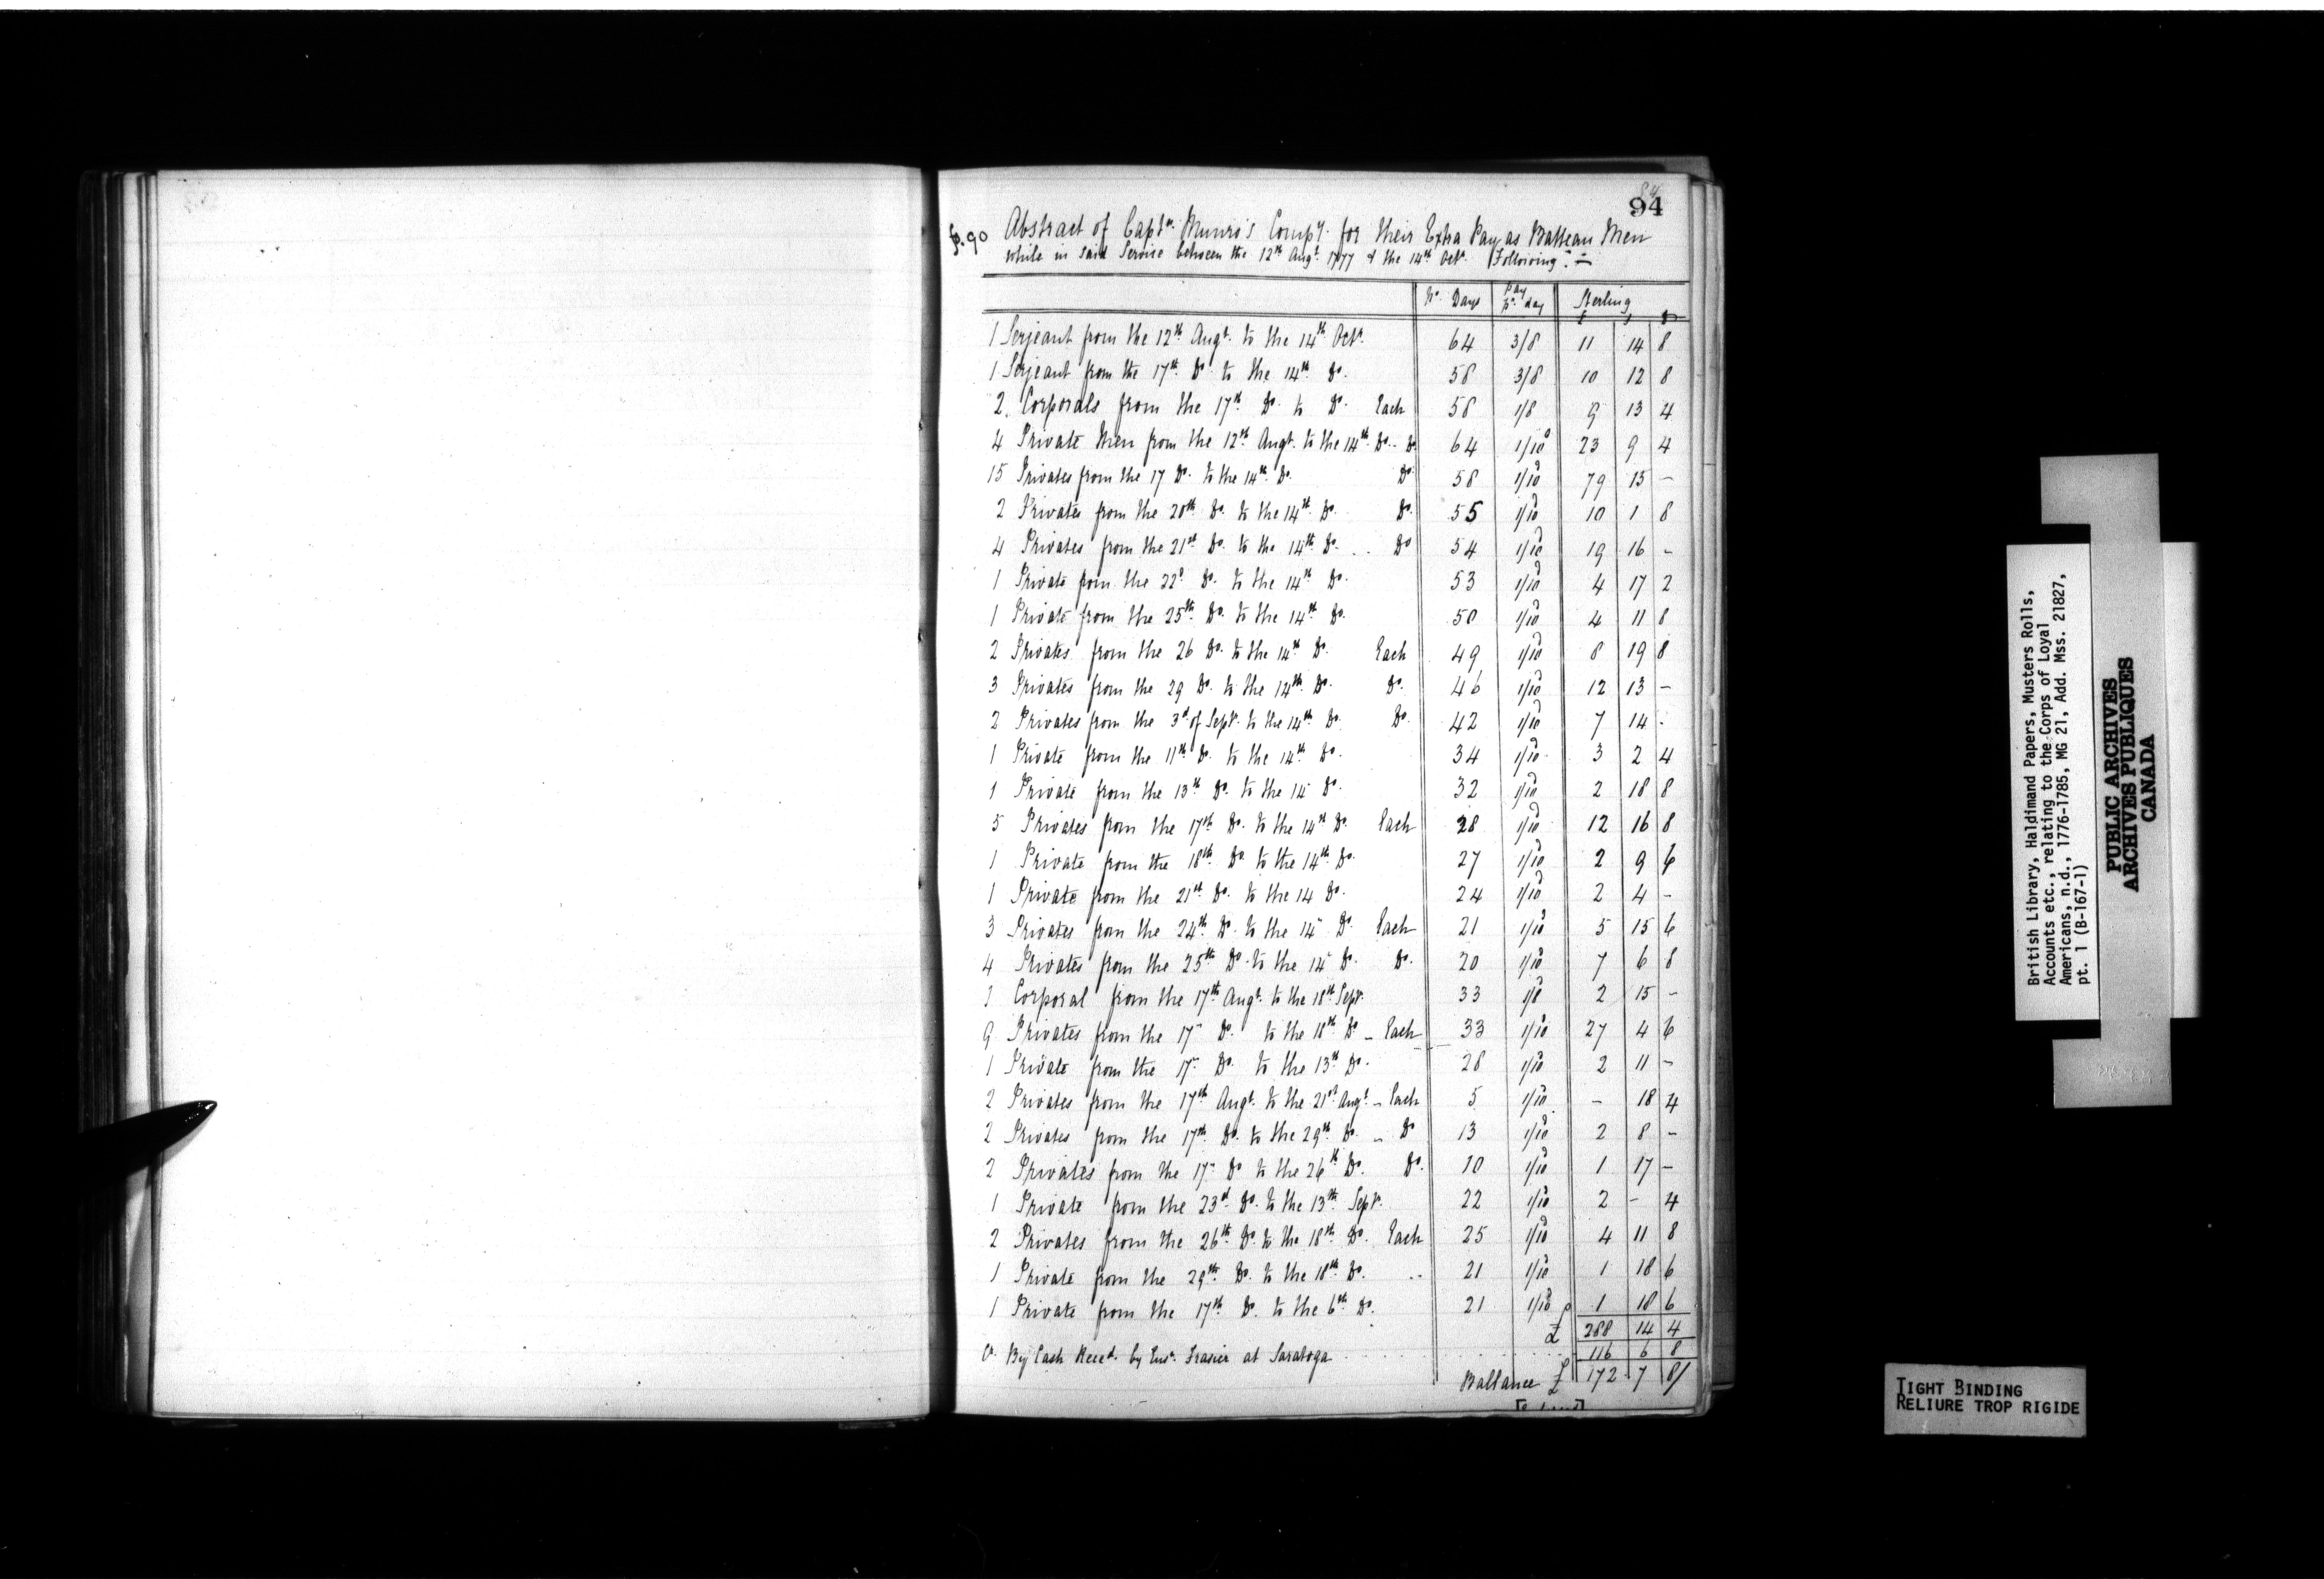 84
94
fo. 90 Abstract of Captn. Munro's Compy. for their Extra Pay as Batteau Men
while in said Service between the 12th Augt. 1777 & the 14th Octr. Following. —
No. Days Pay pr. day Sterling
£ s D
1 Serjeant from the 12th Augt. to the 14th Octr. 64 3/8 11 14 8
1 Serjeant from the 17th Do. to the 14th Do. 58 3/8 10 12 8
2. Corporals from the 17th Do. to Do. Each 58 1/8 9 13 4
4 Private Men from the 12th Augt. to the 14th Do. - Do. 64 1/10d 23 9 4
15 Privates from the 17 Do. to the 14th Do. Do 58 1/10d 79 15 —
2 Privates from the 20th Do. to the 14th Do. Do. 55 1/10d 10 1 8
4 Privates from the 21st Do. to the 14th Do. .. Do 54 1/10d 19 16 -
1 Private from the 22d Do. to the 14th Do. 53 1/10d 4 17 2
1 Private from the 25th Do. to the 14th Do. 50 1/10d 4 11 8
2 Privates from the 26 Do. to the 14th Do. Each 49 1/10d 8 19 8
3 Privates from the 29 Do. to the 14th Do. Do. 46 1/10d 12 13 —
2 Privates from the 3d of Sepr. to the 14th Do. Do. 42 1/10d 7 14 -
1 Private from the 11th Do. to the 14th Do. 34 1/10d 3 2 4
1 Private from the 13th Do. to the 14 Do. 32 1/10d 2 18 8
5 Privates from the 17th Do. to the 14th Do. Each 28 1/10d 12 16 8
1 Private from the 18th Do. to the 14th Do. 27 1/10d 2 9 6
1 Private from the 21st Do. to the 14 Do. 24 1/10d 2 4 -
3 Privates from the 24th Do. to the 14 Do. Each 21 1/10d 5 15 6
4 Privates from the 25th Do. to the 14 Do. Do. 20 1/10d 7 6 8
1 Corporal from the 17th Augt. to the 18th Sepr. 33 1/8 2 15 -
9 Privates from the 17 Do. to the 18th Do - Each 33 1/10d 27 4 6
1 Private from the 17 Do. to the 13th Do. 28 1/10d 2 11 -
2 Privates from the 17th Augt. to the 21st Augt. - Each 5 1/10d - 18 4
2 Privates from the 17th Do. to the 29th Do. - Do 13 1/10d 2 8 -
2 Privates from the 17 Do to the 26th Do. Do. 10 1/10d 1 17 -
1 Private from the 23d Do. to the 13th Sepr. 22 1/10d 2 - 4
2 Privates from the 26th Do. to the 18th Do. Each 25 1/10d 4 11 8
1 Private from the 29th Do. to the 18th Do. .. 21 1/10d 1 18 6
1 Private from the 17th Do. to the 6th Do. 21 1/10d 1 18 6
£ 288 14 4
Cr. By Cash Receed. by Ensn. Frasier at Saratoga 116 6 8
Ballance £ 172 7 8/
British Library, Haldimand Papers, Musters Rolls,
Accounts etc., relating to the Corps of Loyal
Americans, n.d., 1776-1785, MG 21, Add. Mss. 21827,
pt. 1 (B-167-1)
PUBLIC ARCHIVES
ARCHIVES PUBLIQUES
CANADA
TIGHT BINDING
RELIURE TROP RIGIDE